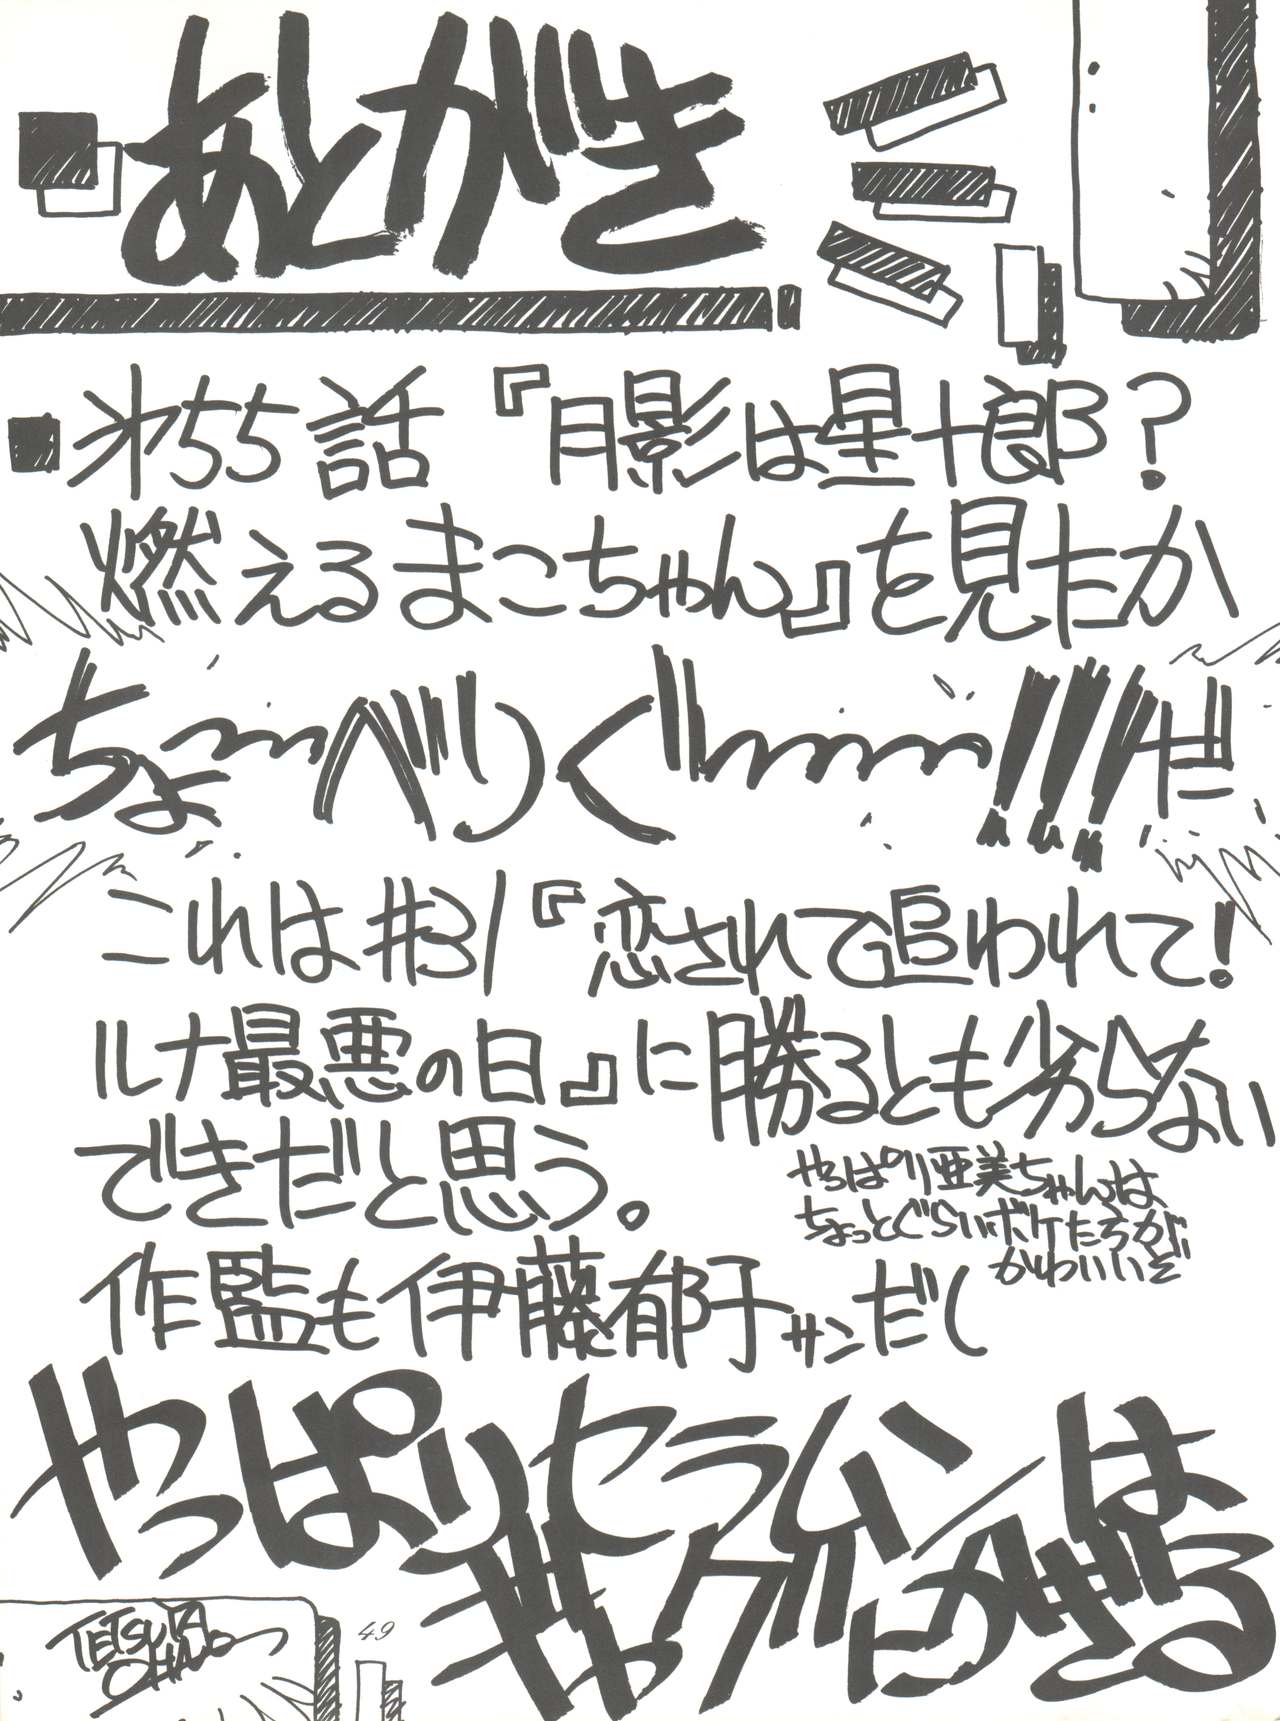 あとがき
■第55話『月影は星十郎?
燃えるまこちゃん』を見たか
ちょーべりぐー!!!だ
これは#31『恋されて追われて!
ルナ最悪の日』に勝るとも劣らない
できだと思う。
やっぱり亜美ちゃんは
ちょっとぐらいボケたらうが
かわいいぞ
作監も伊藤郁子サンだし
やっぱりセラムンは
ギャグにかぎる
TETSUYA
49